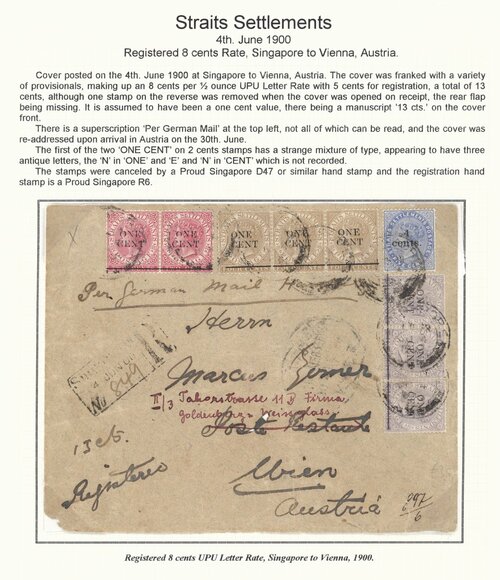 Straits Settlements
4th. June 1900
Registered 8 cents Rate, Singapore to Vienna, Austria.
Cover posted on the 4th. June 1900 at Singapore to Vienna, Austria. The cover was franked with a variety
of provisionals, making up an 8 cents per ½ ounce UPU Letter Rate with 5 cents for registration, a total of 13
cents, although one stamp on the reverse was removed when the cover was opened on receipt, the rear flap
being missing. It is assumed to have been a one cent value, there being a manuscript '13 cts.' on the cover
front.
There is a superscription 'Per German Mail' at the top left, not all of which can be read, and the cover was
re-addressed upon arrival in Austria on the 30th. June.
The first of the two 'ONE CENT' on 2 cents stamps has a strange mixture of type, appearing to have three
antique letters, the 'N' in 'ONE' and 'E' and 'N' in 'CENT' which is not recorded.
The stamps were canceled by a Proud Singapore D47 or similar hand stamp and the registration hand
stamp is a Proud Singapore R6.
ONE CENT
ONE CENT
ONE CENT
ONE CENT
ONE CENT
4 cents.
Per German Mail
Herrn
R
No 849
Marcus
II/3 Taborstrasse 11 B Firma
Goldenberg & Weinglass
13 cts.
Wien
Registered
Austria
Registered 8 cents UPU Letter Rate, Singapore to Vienna, 1900.